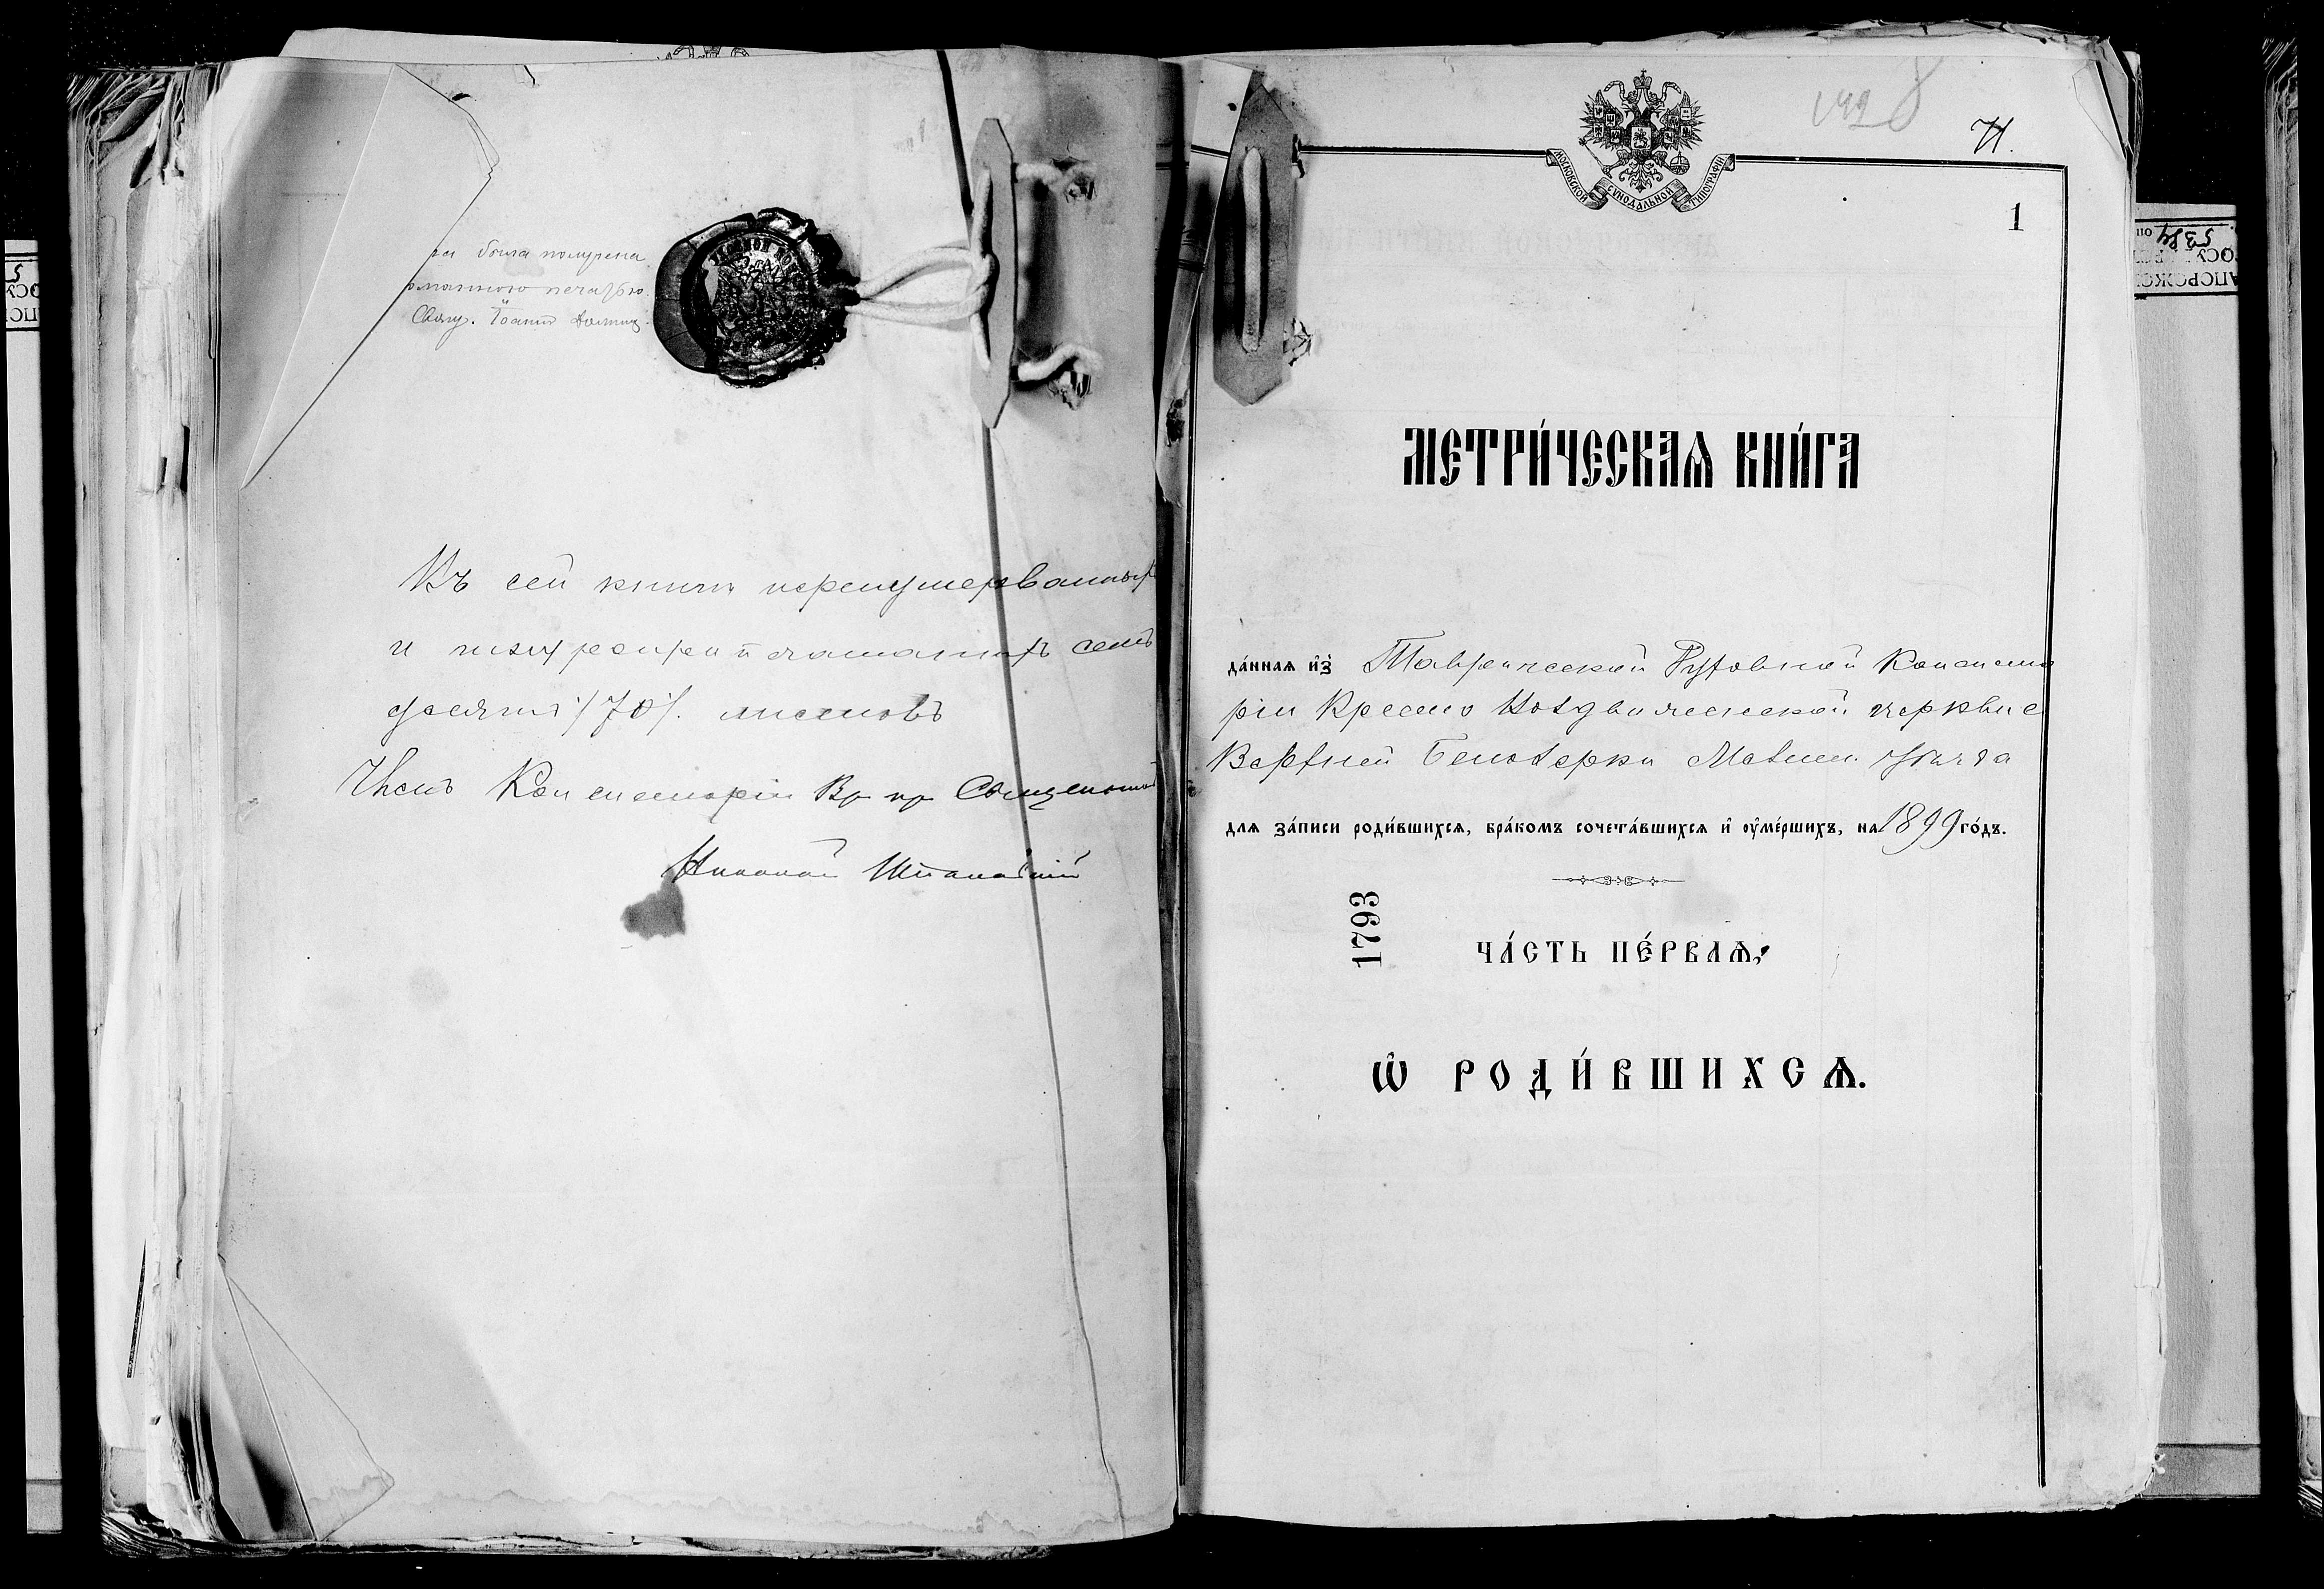 была получена
печатью.
Свящ. Іоаннъ
Въ сей книгѣ перенумерованныхъ
и шнуроприпечатанныхъ семь
десятъ /70/. листовъ
Членъ Консисторіи Вр. пр. Священникъ
Николай
8
71.
МОСКОВСКОЙ СѴНОДАЛЬНОЙ ТИПОГРАФІИ
1
МЕТРИ́ЧЕСКАѦ КНИ́ГА
да́нная и҆з̾ Таврической Духовной Консисто
ріи Кресто Воздвиженской церкви с
Верхней Белозерки Мелит. уѣзда
для за́писи роди́вшихсѧ, бра́комъ сочета́вшихсѧ и҆ оу҆ме́ршихъ, на 1899 го́дъ.
1793
ЧА́СТЬ ПЕ́РВАѦ,
Ѡ҆ РОДИ́ВШИХСѦ.